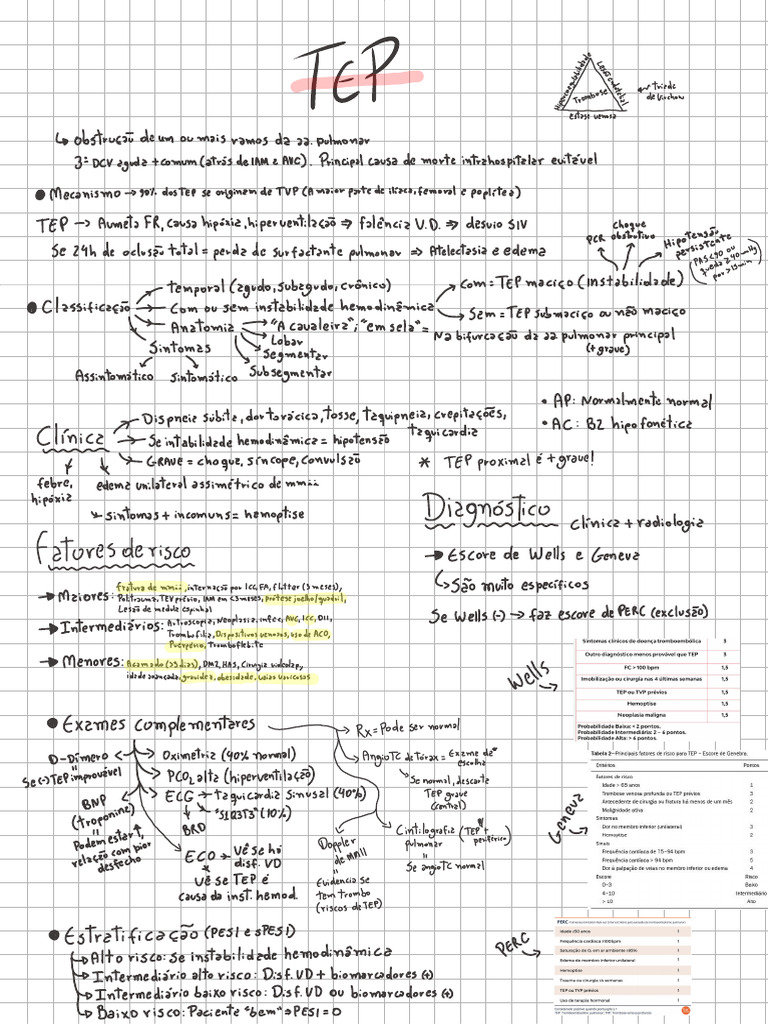 TEP
Hipercoagulabilidade
Lesão endotelial
Trombose
Estase venosa
Tríade de Virchow
↳ obstrução de um ou mais ramos da aa. pulmonar
3ª DCV aguda + comum (atrás de IAM e AVC). Principal causa de morte intrahospitalar evitável
• Mecanismo → 90% dos TEP se originem de TVP (A maior parte de ilíaca, femoral e poplítea)
TEP → Aumeta FR, causa hipóxia, hiperventilação ⇒ falência V.D. ⇒ desvio SIV
Se 24h de oclusão total = perda de surfactante pulmonar ⇒ Atelectasia e edema
PCR
Choque obstrutivo
Hipotensão persistente
(PAS<90 ou queda ≥40mmHg por >15min)
• Classificação
temporal (agudo, subagudo, crônico)
Com ou sem instabilidade hemodinâmica
Com = TEP maciço (instabilidade)
Sem = TEP submaciço ou não maciço
Anatomia → "A cavaleira"; "em sela" = Na bifurcação da aa pulmonar principal (+ grave)
Lobar
Segmentar
Subsegmentar
Sintomas
Assintomático
Sintomático
Clínica
Dispneia súbita, dor torácica, tosse, taquipneia, crepitações, taquicardia
Se instabilidade hemodinâmica = hipotensão
GRAVE = choque, síncope, convulsão
febre, hipóxia
edema unilateral assimétrico de mmii
sintomas + incomuns = hemoptise
• AP: Normalmente normal
• AC: B2 hipofonética
* TEP proximal é + grave!
Fatores de risco
→ Maiores: fratura de mmii, internação por ICC, FA, flutter (3 meses),
Politrauma, TEV prévio, IAM em <3 meses, prótese joelho/quadril,
Lesão de medula espinhal
→ Intermediários: Artroscopia, Neoplasia, infec, AVC, ICC, DII,
Trombofilia, Dispositivos venosos, uso de ACO,
Puerpério, Tromboflebite
→ Menores: Acamado (>3 dias), DM2, HAS, Cirurgia videolap,
idade avançada, gravidez, obesidade, veias varicosas
Diagnóstico
Clínica + radiologia
→ Escore de Wells e Geneva
↳ São muito específicos
Se Wells (-) → faz escore de PERC (exclusão)
Wells
Sintomas clínicos de doença tromboembólica 3
Outro diagnóstico menos provável que TEP 3
FC > 100 bpm 1,5
Imobilização ou cirurgia nas 4 últimas semanas 1,5
TEP ou TVP prévios 1,5
Hemoptise 1,5
Neoplasia maligna 1,5
Probabilidade Baixa: < 2 pontos.
Probabilidade Intermediária: 2 – 6 pontos.
Probabilidade Alta: > 6 pontos.
Geneva
Tabela 2—Principais fatores de risco para TEP - Escore de Genebra.
Critérios Pontos
Fatores de risco
Idade > 65 anos 1
Trombose venosa profunda ou TEP prévios 3
Antecedente de cirurgia ou fratura há menos de um mês 2
Malignidade ativa 2
Sintomas
Dor no membro inferior (unilateral) 3
Hemoptise 2
Sinais
Frequência cardíaca de 75–94 bpm 3
Frequência cardíaca > 94 bpm 5
Dor à palpação de veias no membro inferior ou edema 4
Escore Risco
0–3 Baixo
4–10 Intermediário
> 10 Alto
• Exames complementares
D-Dímero
Se (-) TEP improvável
BNP (troponina)
=
Podem estar ↑, relação com pior desfecho
Oximetria (40% normal)
PCO2 alta (hiperventilação)
ECG → taquicardia Sinusal (40%)
"S1Q3T3" (10%)
BRD
ECO → Vê se há disf. VD
Vê se TEP é causa da inst. hemod.
Rx = Pode ser normal
AngioTC de Tórax = Exame de escolha
Se normal, descarta TEP grave (central)
Doppler de MMII
=
Evidencia se tem trombo (riscos de TEP)
Cintilografia pulmonar (TEP + periférico)
=
Se angioTC normal
• Estratificação (PESI e sPESI)
→ Alto risco: Se instabilidade hemodinâmica
→ Intermediário alto risco: Disf. VD + biomarcadores (+)
→ Intermediário baixo risco: Disf. VD ou biomarcadores (+)
→ Baixo risco: Paciente "bem" ⇒ PESI = 0
PERC
PERC
Idade ≥50 anos 1
Frequência cardíaca ≥100bpm 1
Saturação de O2 em ar ambiente ≤95% 1
Edema de membro inferior unilateral 1
Hemoptise 1
Trauma ou cirurgia ≤4 semanas 1
TEP ou TVP prévios 1
Uso de terapia hormonal 1